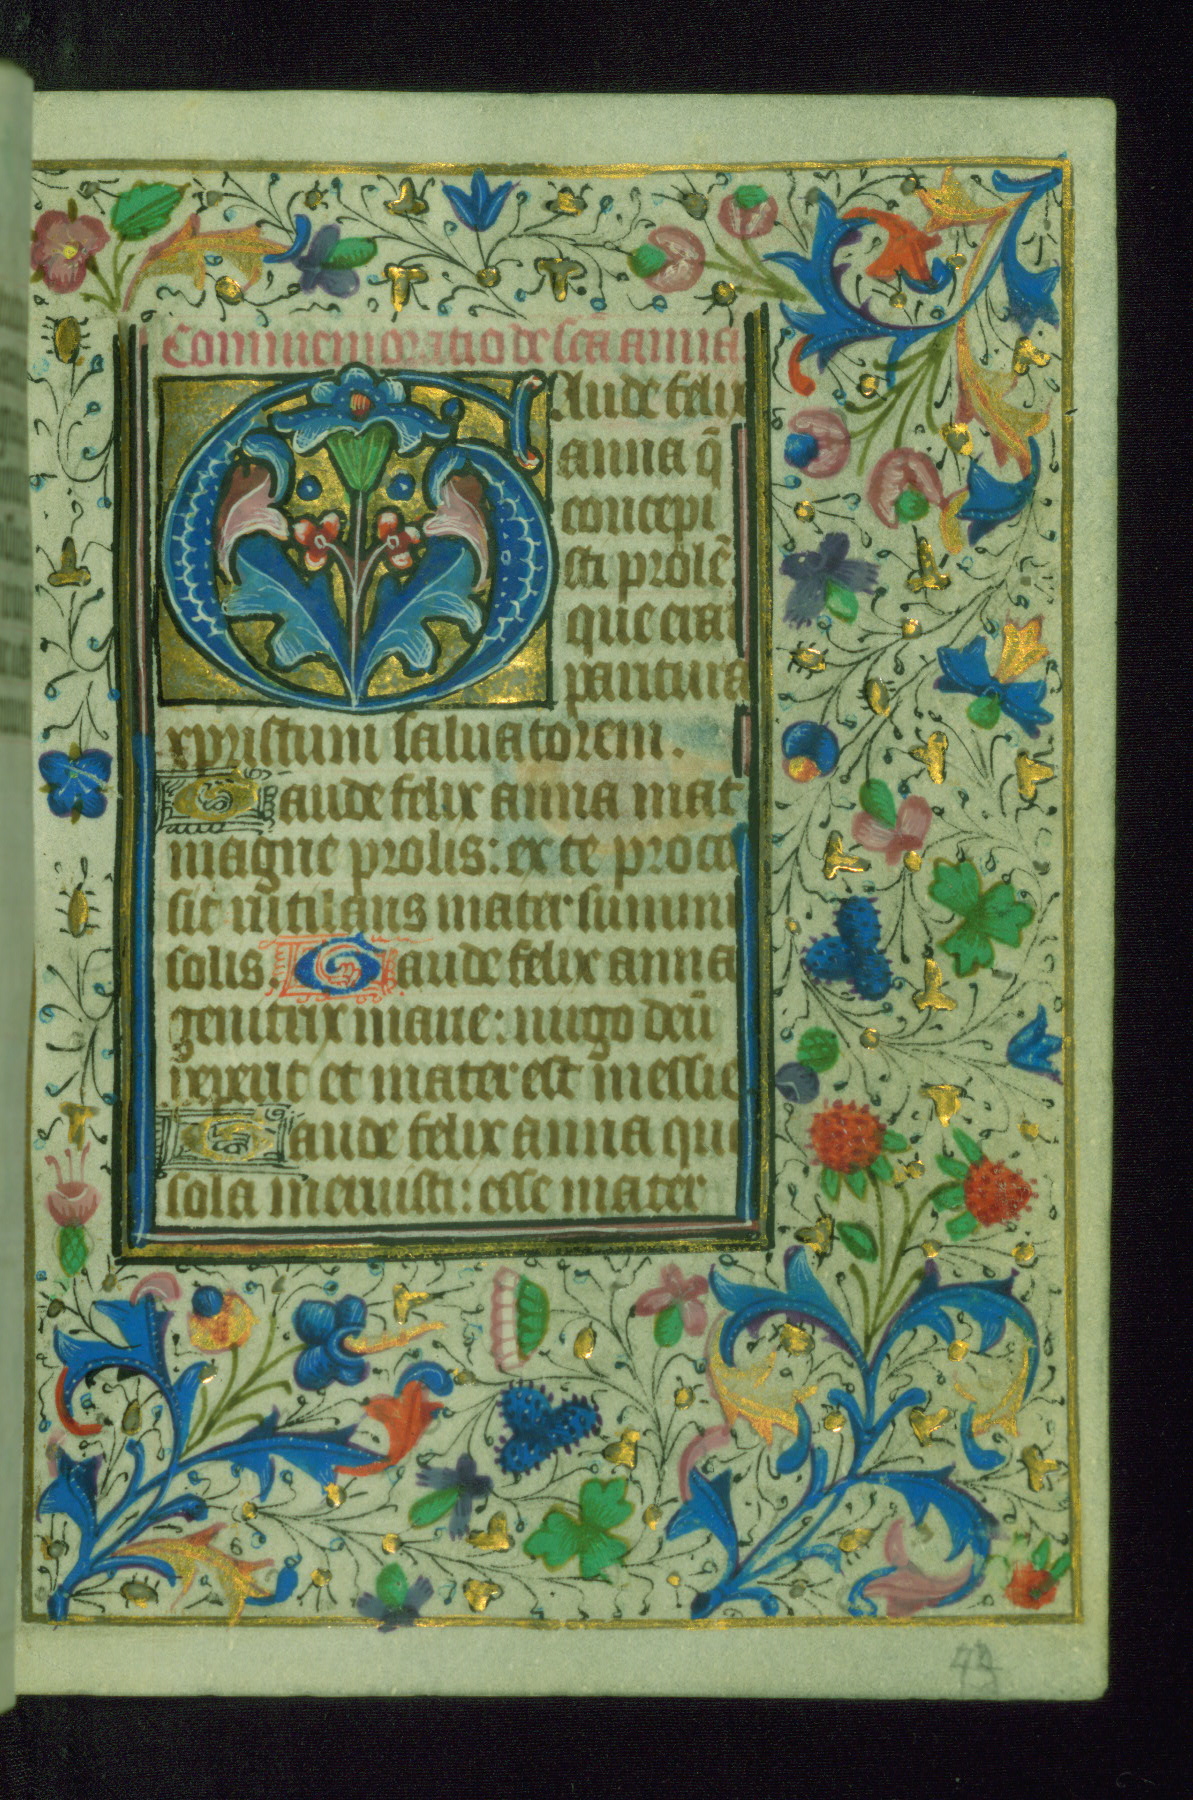 Commemoratio de scā anna
Gaude felix
anna q̄
concepi
sti prolē
que erat
paritura
xpristum saluatorem .
Gaude felix anna mat
magne prolis : ex te proces
sit rutilans mater summi
solis . Gaude felix anna
genitrix marie : uirgo deū
et mater est messie
Gaude felix anna que
sola meruisti : esse mater